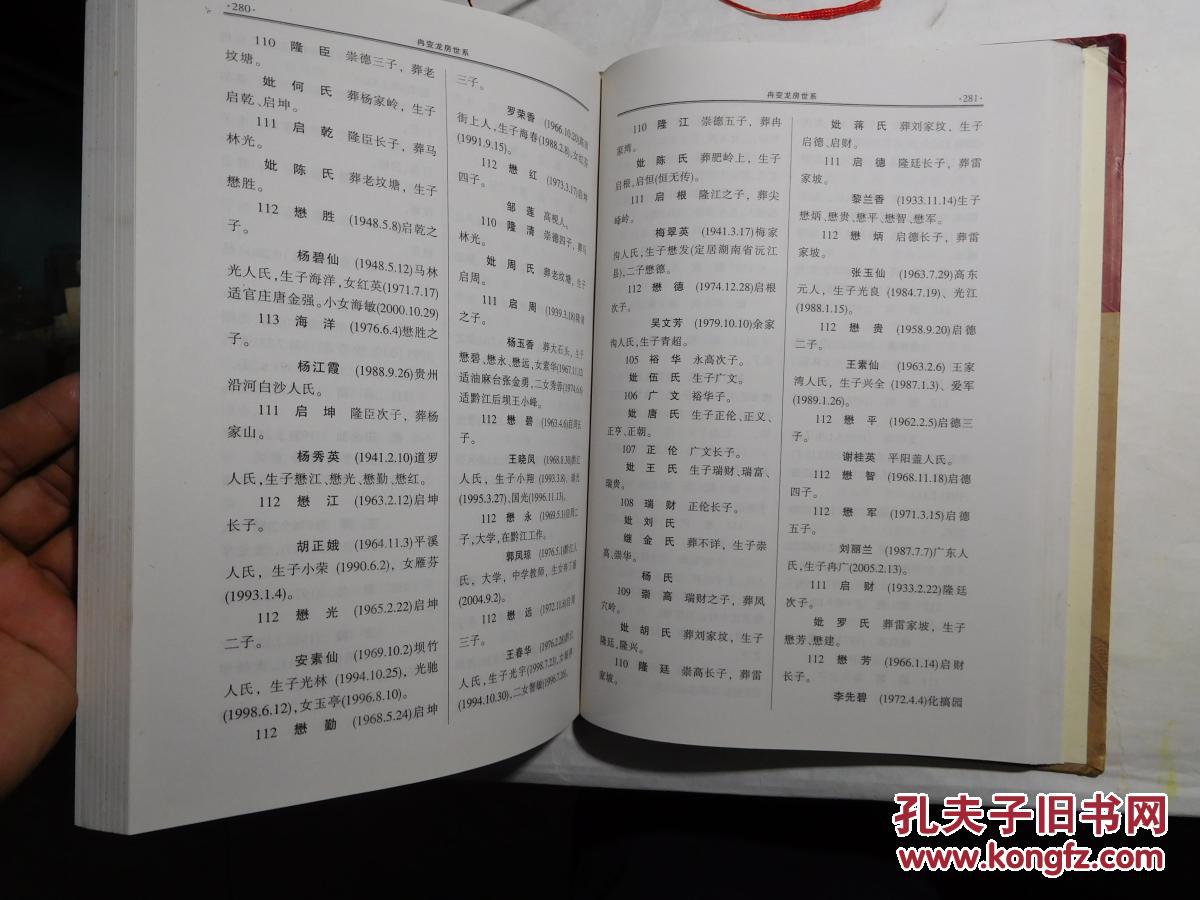 ·280·
冉变龙房世系
110 隆 臣 崇德三子，葬老
坟塘。
妣 何 氏 葬杨家岭，生子
启乾、启坤。
111 启 乾 隆臣长子，葬马
林光。
妣 陈 氏 葬老坟塘，生子
懋胜。
112 懋 胜 (1948.5.8)启乾之
子。
杨碧仙 (1948.5.12)马林
光人氏，生子海洋，女红英(1971.7.17)
适官庄唐金强。小女海敏(2000.10.29)
113 海 洋 (1976.6.4)懋胜之
子。
杨江霞 (1988.9.26)贵州
沿河白沙人氏。
111 启 坤 隆臣次子，葬杨
家山。
杨秀英 (1941.2.10)道罗
人氏，生子懋江、懋光、懋勤、懋红。
112 懋 江 (1963.2.12)启坤
长子。
胡正娥 (1964.11.3)平溪
人氏，生子小荣 (1990.6.2)，女雁芬
(1993.1.4)。
112 懋 光 (1965.2.22)启坤
二子。
安素仙 (1969.10.2)坝竹
人氏，生子光林 (1994.10.25)，光驰
(1998.6.12)，女玉亭(1996.8.10)。
112 懋 勤 (1968.5.24)启坤
三子。
罗荣香 (1966.10.20)
街上人，生子海春(1988.2.8)，女红芬
(1991.9.15)。
112 懋 红 (1973.3.17)启坤
四子。
邹 莲 高枧人。
110 隆 清 崇德四子，葬马
林光。
妣 周 氏 葬老坟塘，生子
启周。
111 启 周 (1939.3.18)隆清
之子。
杨玉香 葬大石头，生子
懋碧、懋永、懋远，女素华(1967.11.12)
适油麻台张金勇，二女秀蓉(1974.6.6)
适黔江后坝王小峰。
112 懋 碧 (1963.4.6)启周长
子。
王晓凤 (1968.8.30)黔江
人氏，生子小翔 (1993.3.8)、
(1995.3.27)、国光(1996.11.13)。
112 懋 永 (1969.5.1)启周二
子，大学，在黔江工作。
郭凤琼 (1976.5.1)黔江人
氏，大学，中学教师，生女布丁
(2004.9.2)。
112 懋 远 (1972.11.8)启周
三子。
王春华 (1976.2.28)黔江
人氏，生子光宇(1998.7.23)，女
(1994.10.30)，二女智敏(1996.7.26)。
冉变龙房世系
·281·
110 隆 江 崇德五子，葬冉
家塆。
妣 陈 氏 葬肥岭上，生子
启根，启恒(恒无传)。
111 启 根 隆江之子，葬尖
峰岭。
梅翠英 (1941.3.17)梅家
沟人氏，生子懋发(定居湖南省沅江
县)，二子懋德。
112 懋 德 (1974.12.28)启根
次子。
吴文芳 (1979.10.10)余家
沟人氏，生子青超。
105 裕 华 永高次子。
妣 伍 氏 生子广文。
106 广 文 裕华子。
妣 唐 氏 生子正伦、正义、
正亨、正朝。
107 正 伦 广文长子。
妣 王 氏 生子瑞财、瑞富、
瑞贵。
108 瑞 财 正伦长子。
妣 刘 氏
继 金 氏 葬不详，生子崇
高、崇华。
杨 氏
109 崇 高 瑞财之子，葬凤
穴岭。
妣 胡 氏 葬刘家坟，生子
隆廷，隆兴。
110 隆 廷 崇高长子，葬雷
家坡。
妣 蒋 氏 葬刘家坟，生子
启德、启财。
111 启 德 隆廷长子，葬雷
家坡。
黎兰香 (1933.11.14)生子
懋炳、懋贵、懋平、懋智、懋军。
112 懋 炳 启德长子，葬雷
家坡。
张玉仙 (1963.7.29)高东
元人，生子光良 (1984.7.19)、光江
(1988.1.15)。
112 懋 贵 (1958.9.20)启德
二子。
王素仙 (1963.2.6) 王家
湾人氏，生子兴全 (1987.1.3)、爱军
(1989.1.26)。
112 懋 平 (1962.2.5)启德三
子。
谢桂英 平阳盖人氏。
112 懋 智 (1968.11.18)启德
四子。
112 懋 军 (1971.3.15)启德
五子。
刘丽兰 (1987.7.7)广东人
氏，生子冉广(2005.2.13)。
111 启 财 (1933.2.22)隆廷
次子。
妣 罗 氏 葬雷家坡，生子
懋芳、懋建。
112 懋 芳 (1966.1.14)启财
长子。
李先碧 (1972.4.4)化搞园
孔夫子旧书网
www.kongfz.com